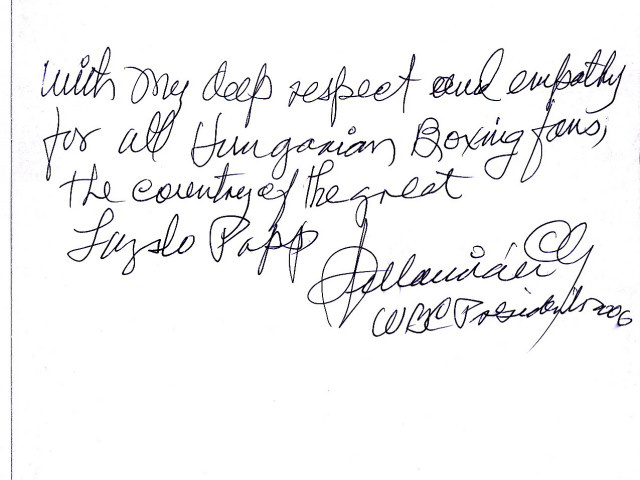 with my deep respect and empathy
for all Hungarian Boxing fans,
the country of the great
Lazslo Papp
WBC President 2006